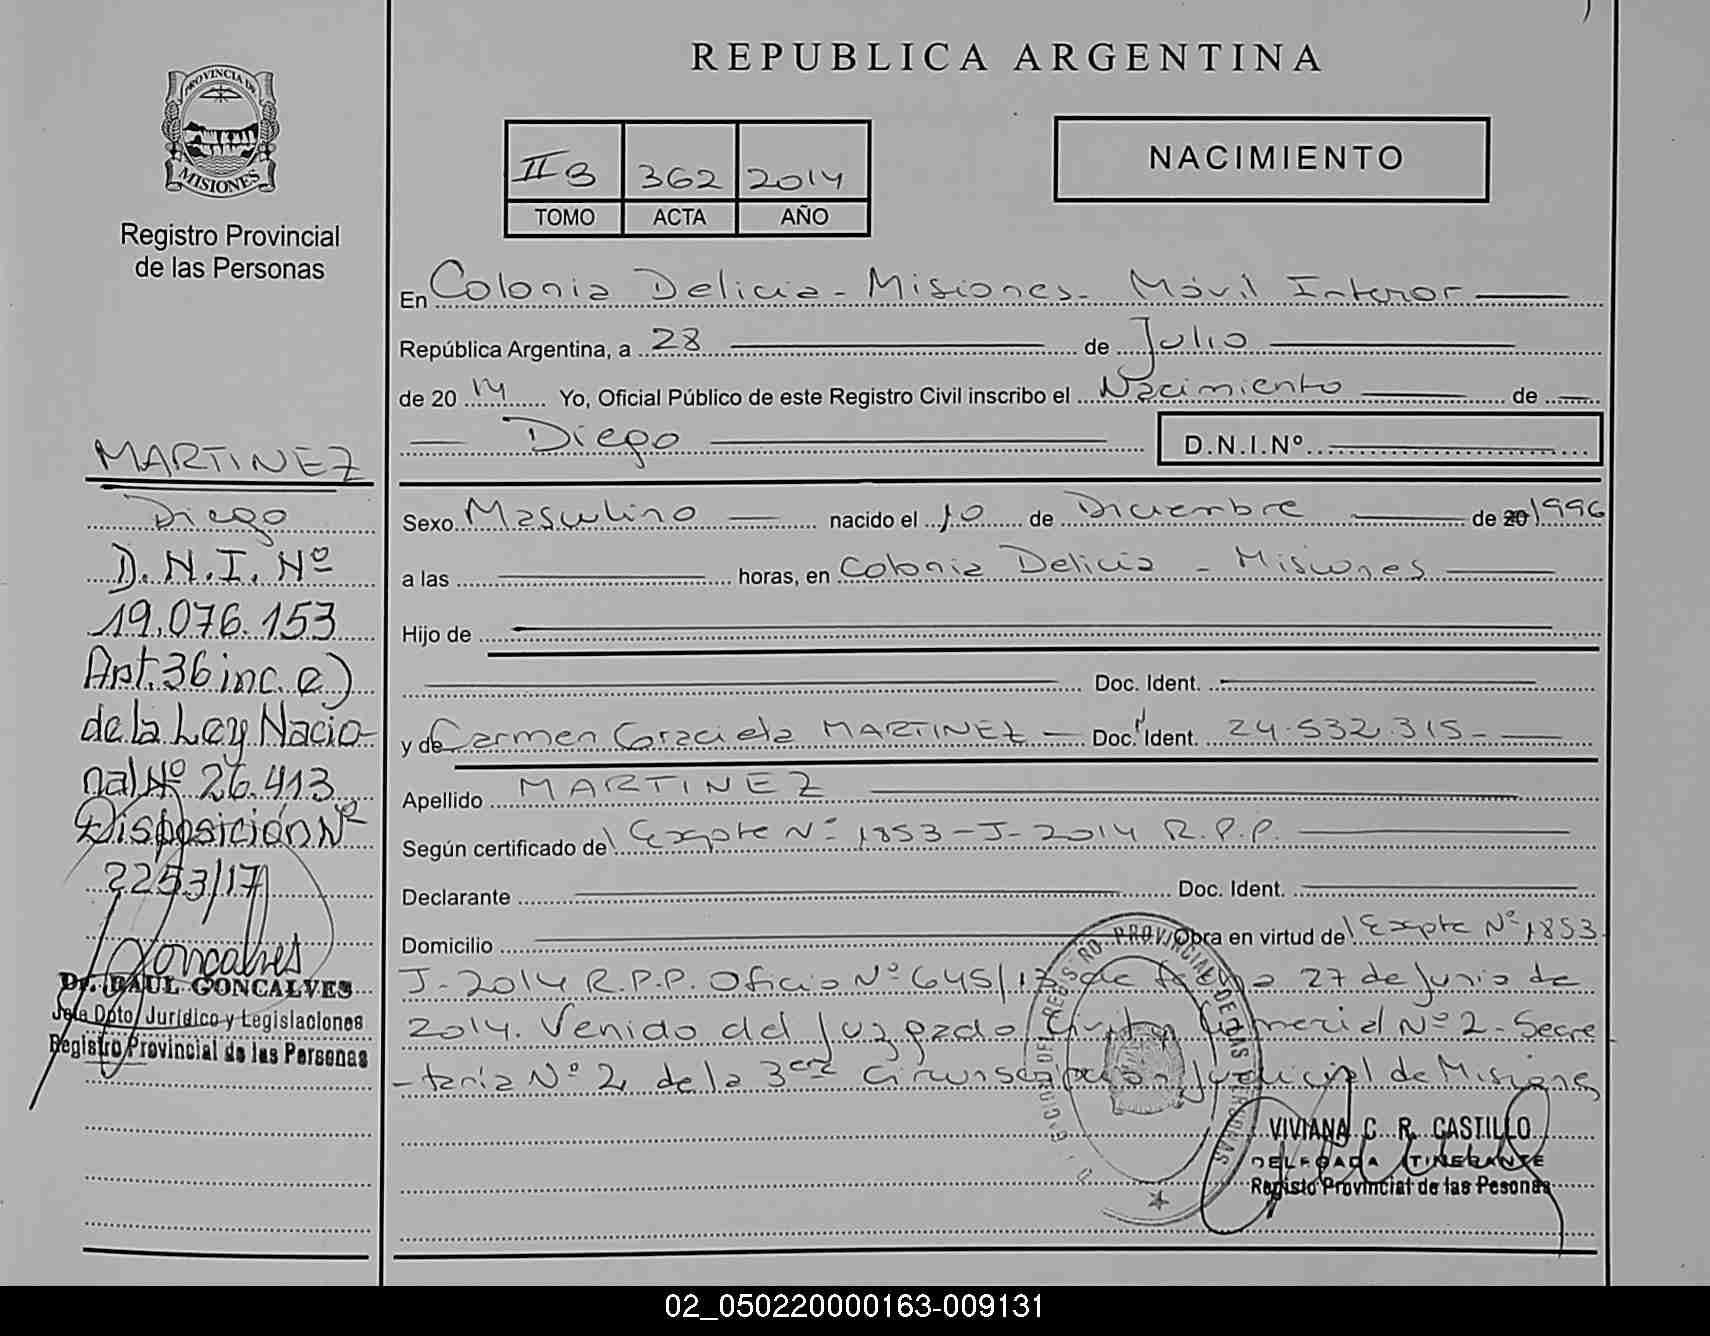 REPUBLICA ARGENTINA
PROVINCIA DE
MISIONES
Registro Provincial
de las Personas
IIB 362 2014
TOMO ACTA AÑO
NACIMIENTO
En Colonia Delicia - Misiones - Móvil Interior
República Argentina, a 28 de Julio
de 2014 Yo, Oficial Público de este Registro Civil inscribo el Nacimiento de
Diego D.N.I.Nº
Sexo Masculino nacido el 10 de Diciembre de 20 1996
a las horas, en Colonia Delicia - Misiones
Hijo de
Doc. Ident.
y de Carmen Graciela MARTINEZ Doc. Ident. 24.532.315-
Apellido MARTINEZ
Según certificado de Expte Nº 1853-J-2014 R.P.P.
Declarante Doc. Ident.
Domicilio Obra en virtud de Expte Nº 1853
J-2014 R.P.P. Oficio Nº 645/13 de fecha 27 de Junio de
2014. Venido del Juzgado Civil y Comercial Nº 2 - Secre
-taría Nº 2, de la 3era Circunscripción Judicial de Misiones
VIVIANA C. R. CASTILLO
DELEGADA ITINERANTE
Registo Provincial de las Pesonas
MARTINEZ
Diego
D.N.I. Nº
19.076.153
Art. 36 inc. e)
de la Ley Nacio-
nal Nº 26.413
Disposición Nº
2253/17
Goncalves
Dr. RAUL GONCALVES
Jefe Dpto. Jurídico y Legislaciones
Registro Provincial de las Personas
02_050220000163-009131